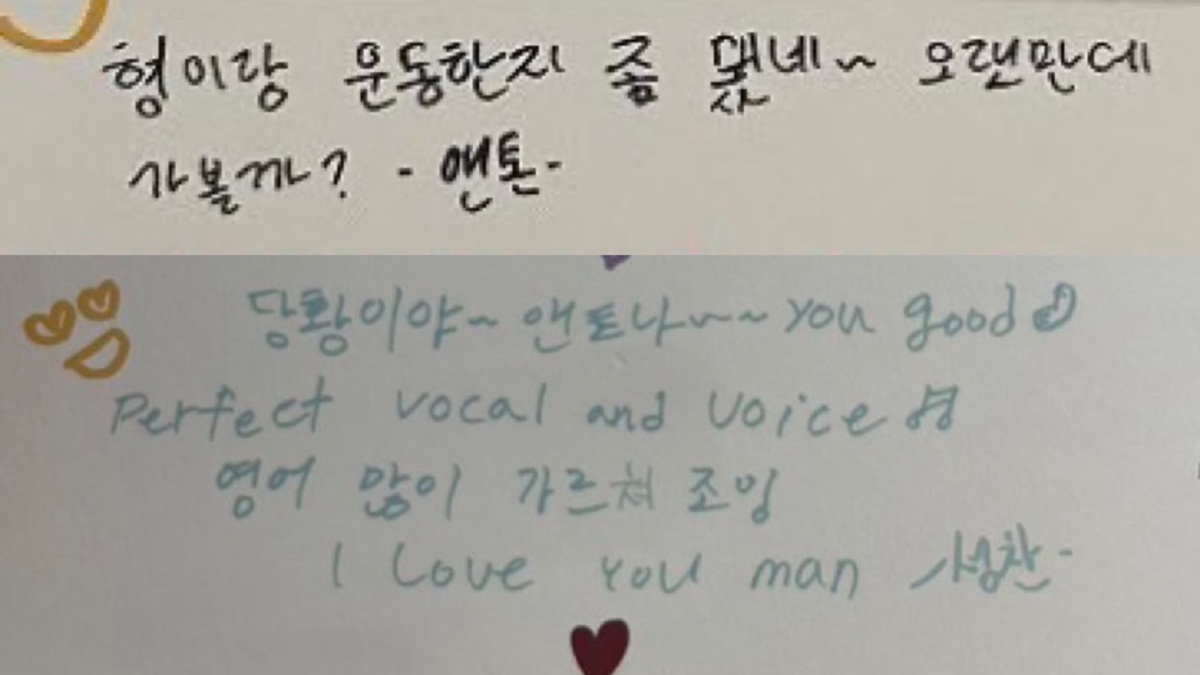 형이랑 운동한지 좀 됐네~ 오랜만데
가볼까? - 앤톤-
당황이야~ 앤토나~~ you good
Perfect vocal and voice
영어 많이 가르쳐 조잉
I Love you man 성찬-